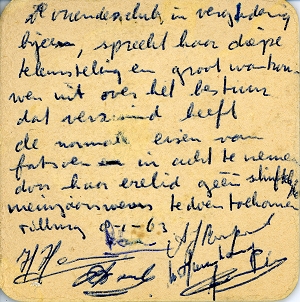 De vriendenclub, in vergadering
bijeen, spreekt haar diepe
teleurstelling en groot wantrou-
wen uit over het bestuur
dat verzuimd heeft
de normale eisen van
fatsoen in acht te nemen
door haar erelid géén
te doen toekomen
63